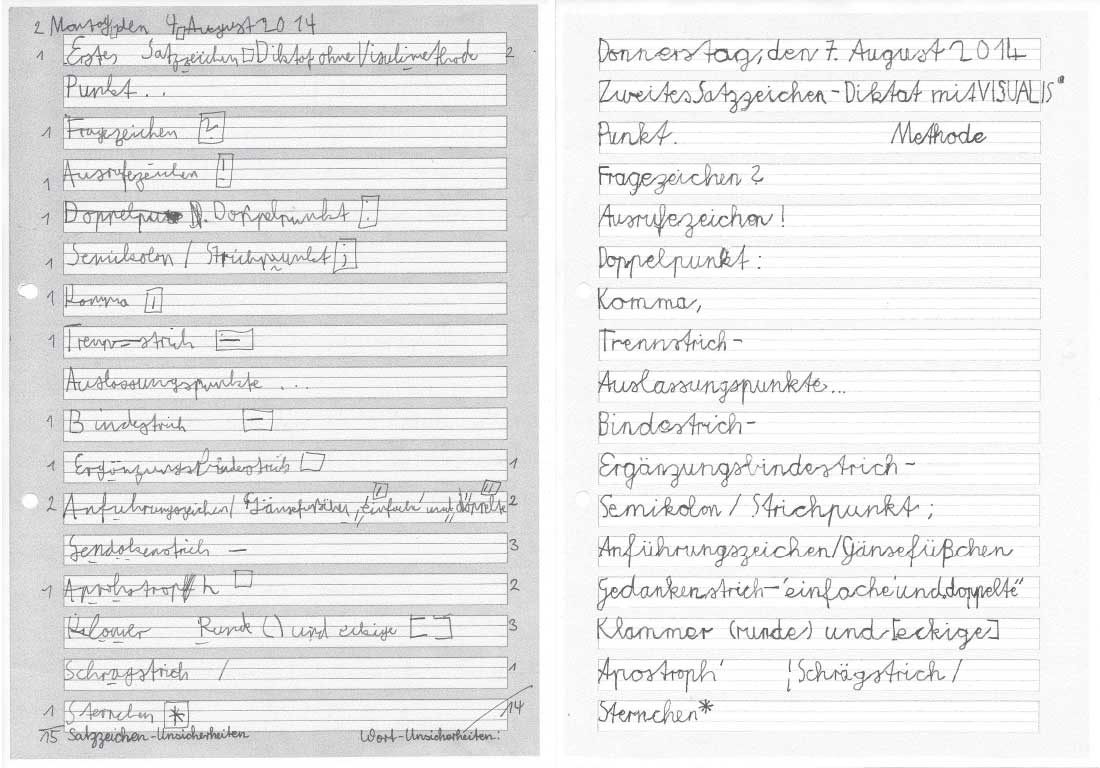 2 Montag, den 4. August 2014
1 Erstes Satzzeichen Diktat ohne Visulimethode 2
Punkt..
1 Fragezeichen ?
1 Ausrufezeichen !
1 Doppelpunkt :
1 Semikolon / Strichpunkt ; 
1 Komma ,
1 Trenn-strich –
Auslossungspunkte ...
1 Bindestrich –
1 Ergönzungsbindestrich 1
2 Anfuhrungszeichen/ "einfache" und "doppelte 2
Gendokenstrich – 3
1 Aprohstroph 2
Runde () und eckige [ ] 3
Schragstrich / 1
1 Sternchen * 14
15 Satzzeichen-Unsicherheiten Wort-Unsicherheiten:
Donnerstag, den 7. August 2014
Zweites Satzzeichen-Diktat mit VISUALIS*
Punkt. Methode
Fragezeichen ?
Ausrufezeichen !
Doppelpunkt :
Komma,
Trennstrich-
Auslassungspunkte...
Bindestrich-
Ergänzungsbindestrich-
Semikolon / Strichpunkt ;
Anführungszeichen/Gänsefüßchen
Gedankenstrich-'einfache' und „doppelte"
Klammer (runde) und [eckige]
Apostroph' ¦Schrägstrich /
Sternchen*